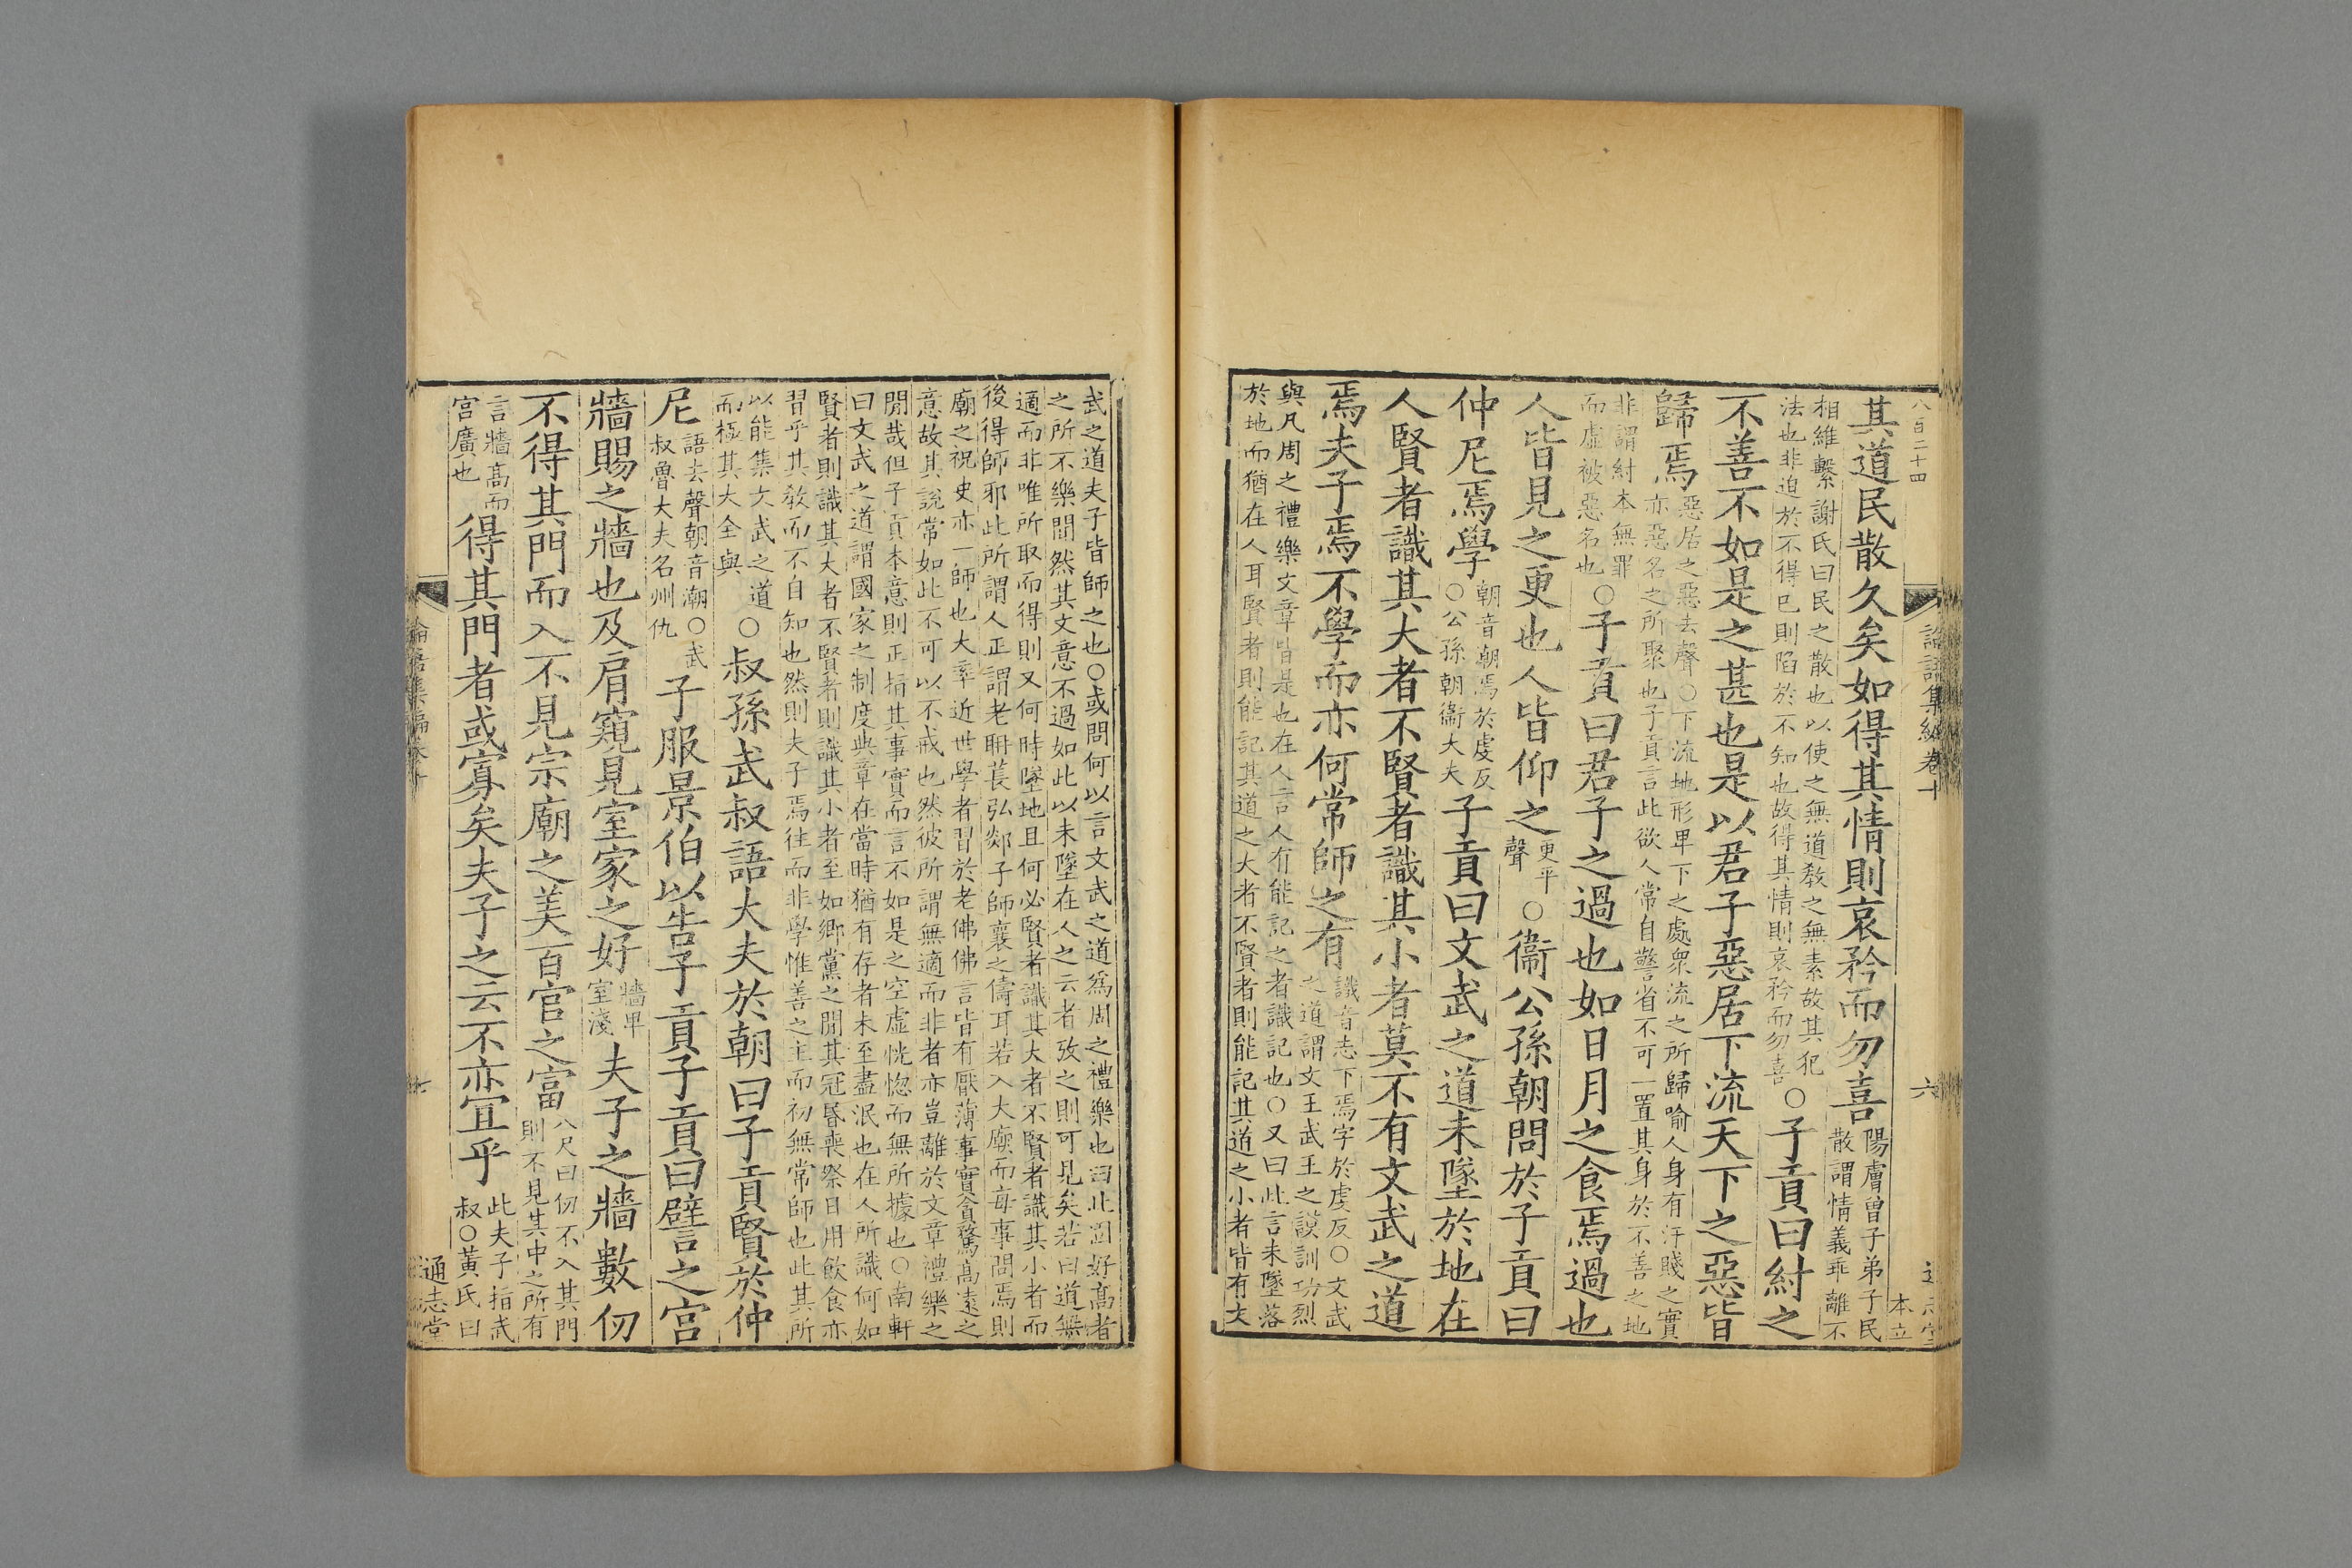 八百二十四
論語集編卷十
六
本立
其道民散久矣如得其情則哀矜而勿喜
陽膚曾子弟子民
散謂情義乖離不
相維繫謝氏曰民之散也以使之無道敎之無素故其犯
法也非迫於不得已則陷於不知也故得其情則哀矜而勿喜
○子貢曰紂之
不善不如是之甚也是以君子惡居下流天下之惡皆
歸焉
惡居之惡去聲○下流地形卑下之處衆流之所歸喻人身有汙賤之實
亦惡名之所聚也子貢言此欲人常自警省不可一置其身於不善之地
非謂紂本無罪
而虛被惡名也
○子貢曰君子之過也如日月之食焉過也
人皆見之更也人皆仰之
更平
聲
○衞公孫朝問於子貢曰
仲尼焉學
朝音朝焉於虔反
○公孫朝衞大夫
子貢曰文武之道未墜於地在
人賢者識其大者不賢者識其小者莫不有文武之道
焉夫子焉不學而亦何常師之有
識音志下焉字於虔反○文武
之道謂文王武王之謨訓功烈
與凡周之禮樂文章皆是也在人言人有能記之者識記也○又曰此言未墜落
於地而猶在人耳賢者則能記其道之大者不賢者則能記其道之小者皆有文
武之道夫子皆師之也○或問何以言文武之道爲周之禮樂也曰此固好高者
之所不樂聞然其文意不過如此以未墜在人之云者攷之則可見矣若曰道無
適而非唯所取而得則又何時墜地且何必賢者識其大者不賢者識其小者而
後得師邪此所謂人正謂老聃萇弘郯子師襄之儔耳若入大廟而每事問焉則
廟之祝史亦一師也大率近世學者習於老佛佛言皆有厭薄事實貪騖高遠之
意故其說常如此不可以不戒也然彼所謂無適而非者亦豈離於文章禮樂之
閒哉但子貢本意則正指其事實而言不如是之空虛恍惚而無所據也○南軒
曰文武之道謂國家之制度典章在當時猶有存者未至盡泯也在人所識何如
賢者則識其大者不賢者則識其小者至如鄉黨之閒其冠昬喪祭日用飲食亦
習乎其敎而不自知也然則夫子焉往而非學惟善之主而初無常師也此其所
以能集文武之道
而極其大全與
○叔孫武叔語大夫於朝曰子貢賢於仲
尼
語去聲朝音潮○武
叔魯大夫名州仇
子服景伯以告子貢子貢曰譬之宮
牆賜之牆也及肩窺見室家之好
牆卑
室淺
夫子之牆數仞
不得其門而入不見宗廟之美百官之富
八尺曰仞不入其門
則不見其中之所有
言牆高而
宮廣也
得其門者或寡矣夫子之云不亦宜乎
此夫子指武
叔○黃氏曰
論語集編卷十
通志堂